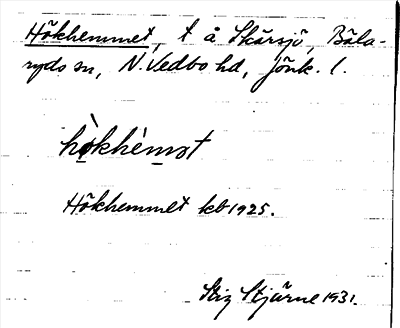 Hökhemmet, t å Skärsjö, Bäla-
ryds sn, N. Vedbo hd, Jönk. l.
hö̀khèmət
Hökhemmet kb 1925.
Stig Stjärne 1931.